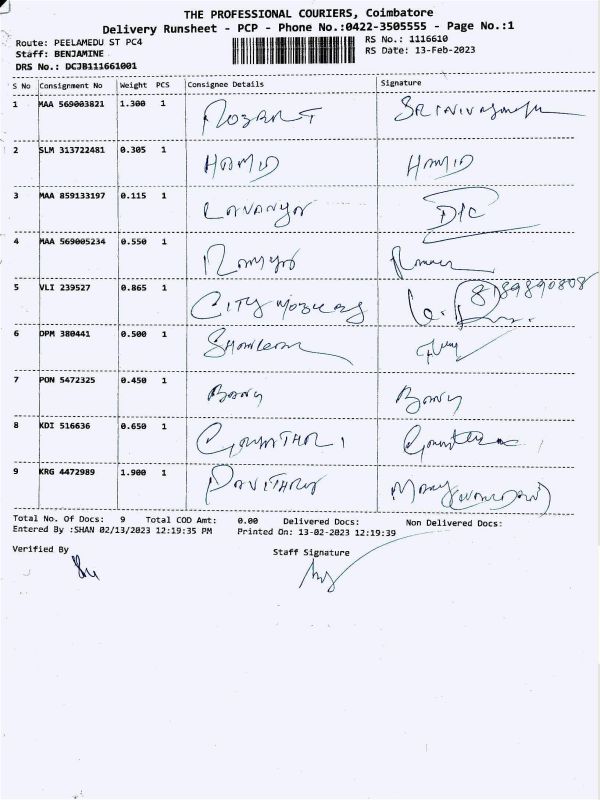 THE PROFESSIONAL COURIERS, Coimbatore
Delivery Runsheet - PCP - Phone No.:0422-3505555 - Page No.:1
Route: PEELAMEDU ST PC4
RS No.: 1116610
Staff: BENJAMINE
RS Date: 13-Feb-2023
DRS No.: DCJB111661001
S No Consignment No Weight PCS Consignee Details Signature
1 MAA 569003821 1.300 1
2 SLM 313722481 0.305 1 HAMID HAMID
3 MAA 859133197 0.115 1 LAVANYA
4 MAA 569005234 0.550 1 RAMYA
5 VLI 239527 0.865 1 CITY
6 DPM 380441 0.500 1
7 PON 5472325 0.450 1
8 KDI 516636 0.650 1
9 KRG 4472989 1.900 1 PAVITHRA
Total No. Of Docs: 9 Total COD Amt: 0.00 Delivered Docs: Non Delivered Docs:
Entered By :SHAN 02/13/2023 12:19:35 PM Printed On: 13-02-2023 12:19:39
Verified By
Staff Signature